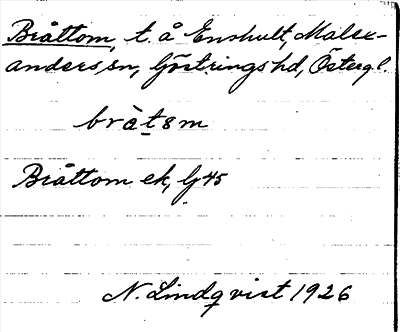 Bråttom, t. å Enshult, Malex-
anders sn, Göstrings hd, Östergl.
bråtsm
Bråttom ek, Gj 45
N. Lindqvist 1926